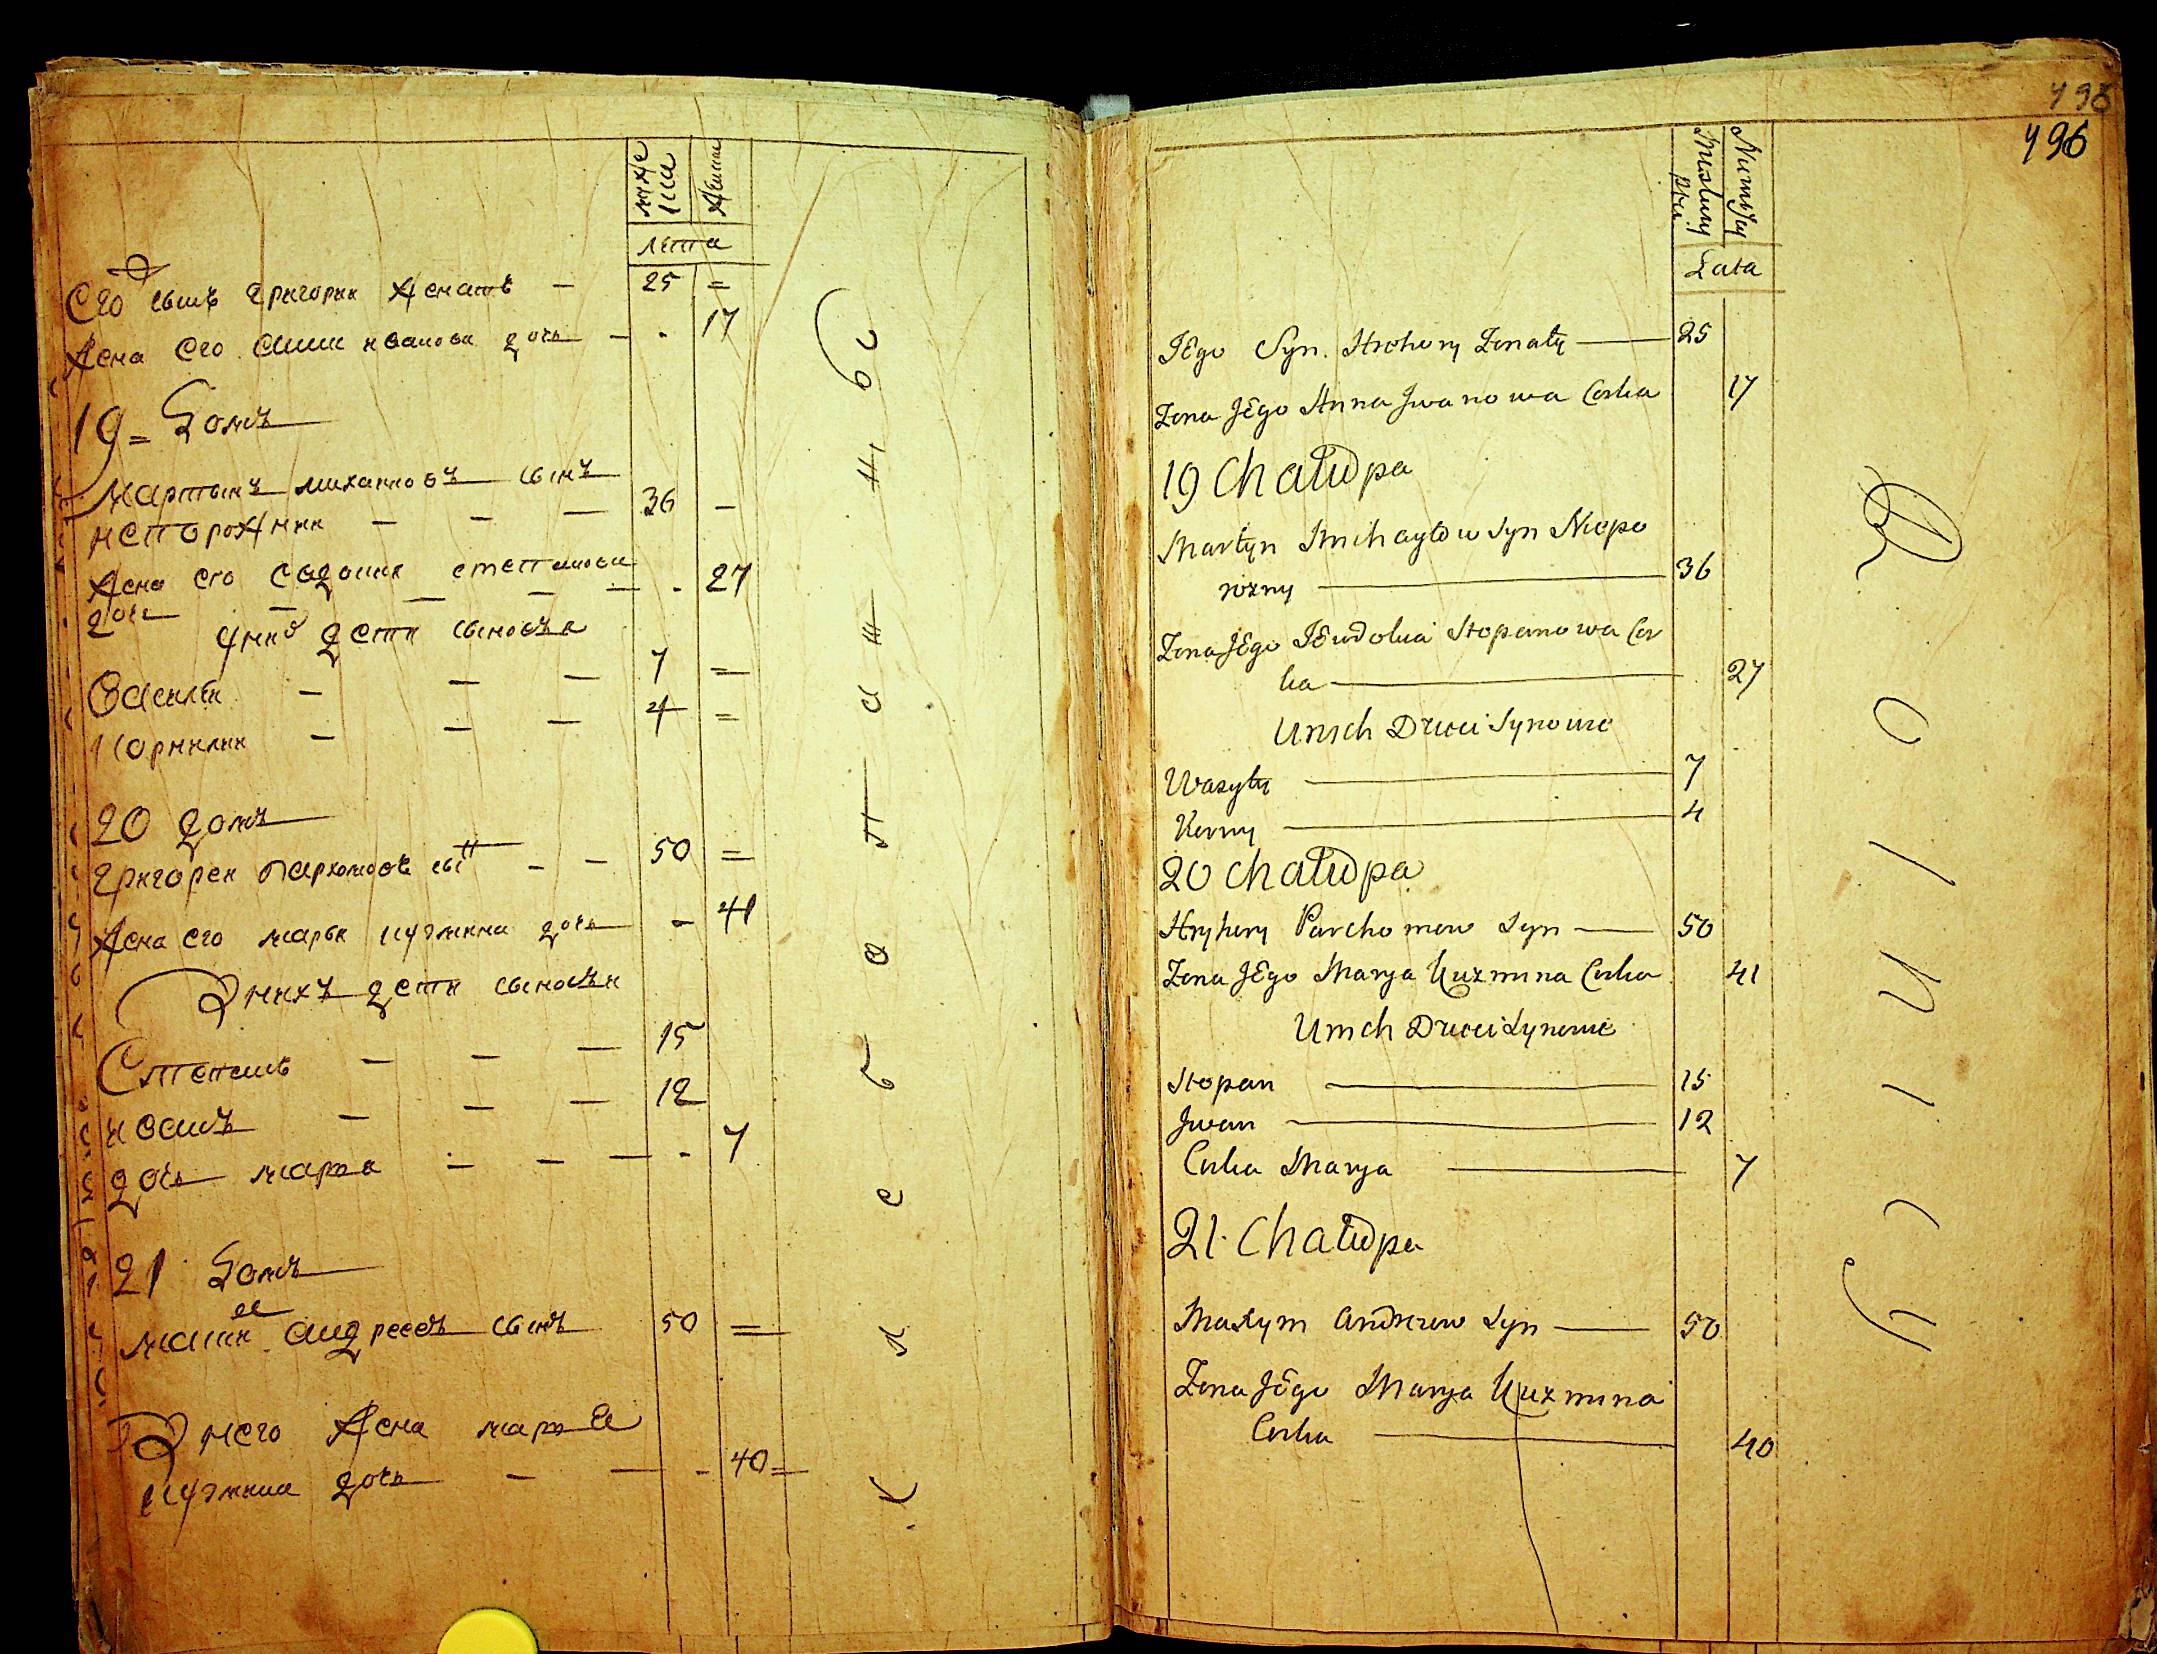 муже
ска
Женска
лета
Его сынъ григории Женатъ — 25 =
Жена Его анна иванова дочь — - 17
19 = Домъ
Мартынъ михаиловъ сынъ
непорожнии — — — 36 —
Жена его евдокия степанова
дочь — — — — - 27
у них дети сыновья
Василеи — — — 7 =
Корнилии — — — 4 =
20 домъ
григореи пархомовъ сынъ — — 50 =
Жена его марья кузмина дочь - 41
У нихъ дети сыновья
Степанъ — — — 15
иванъ — — — 12
дочь марья — — — - 7
21 Домъ
андреевъ сынъ 50 =
У него Жена марья
кузмина дочь — — - 40 =
496
496
Lata
JEgo Syn Hrehory Zonaty — 25
Zona JEgo Anna Jwanowa Corka 17
19 Chałupa
Martyn Michayłow Syn Niepo
rozny — 36
Zona JEgo JEwdokia Stopanowa Cor
ka — 27
Unich Dzieci Synowie
Wasyly — 7
Korny — 4
20 Chałupa
Hryhory Parchomow Syn — 50
Zona JEgo Marya Kuzmina Corka 41
Unich Dzieci Synowie
Stopan — 15
Jwan — 12
Corka Marya — 7
21 Chałupa
Maxym Andrzeiow Syn — 50
Zona JEgo Marya Kuzmina
Corka — 40